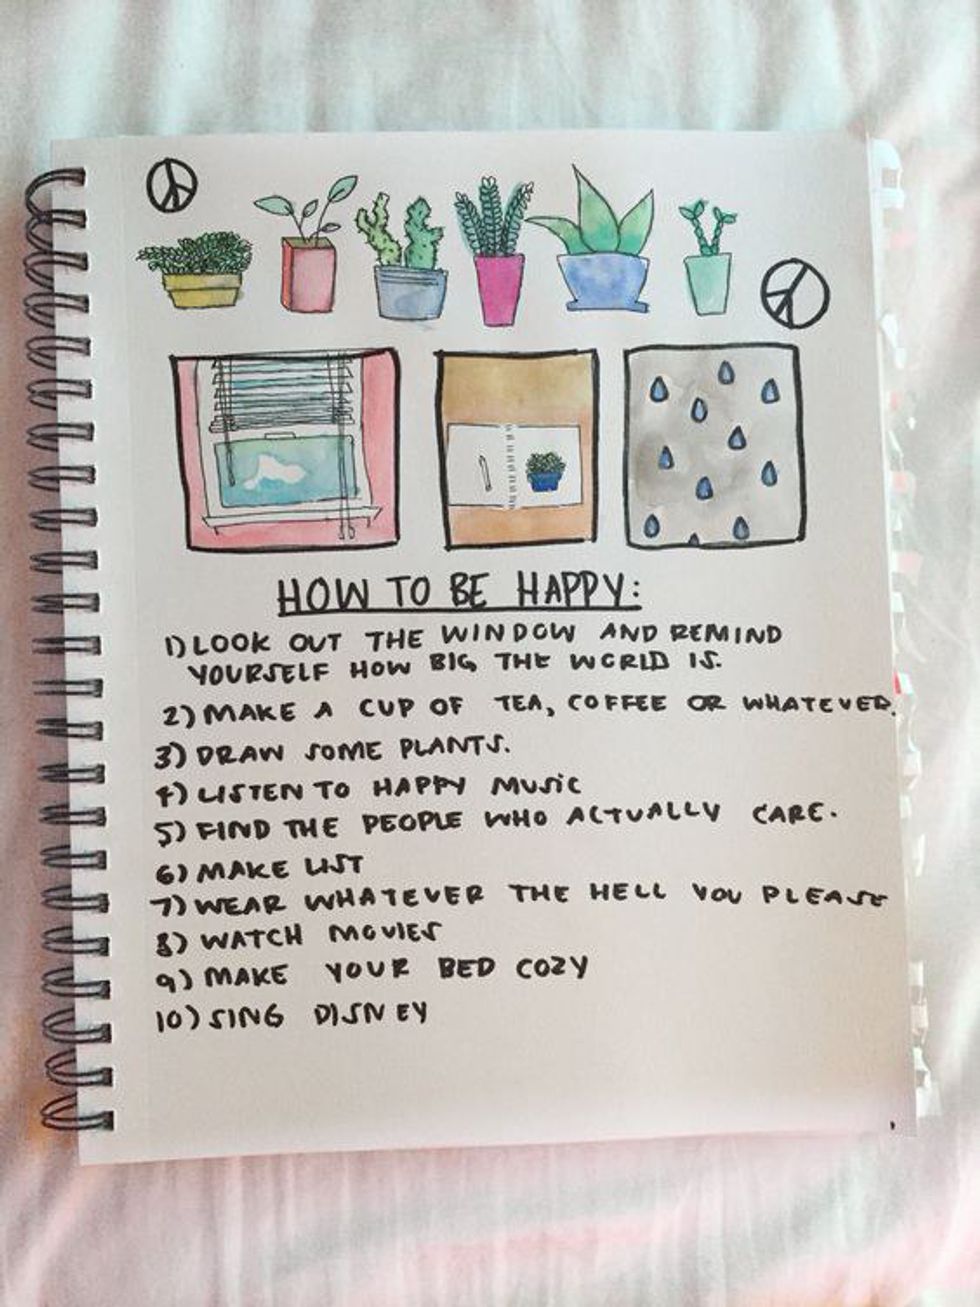 HOW TO BE HAPPY:
1) LOOK OUT THE WINDOW AND REMIND
YOURSELF HOW BIG THE WORLD IS.
2) MAKE A CUP OF TEA, COFFEE OR WHATEVER.
3) DRAW SOME PLANTS.
4) LISTEN TO HAPPY MUSIC
5) FIND THE PEOPLE WHO ACTUALLY CARE.
6) MAKE LIST
7) WEAR WHATEVER THE HELL YOU PLEASE
8) WATCH MOVIES
9) MAKE YOUR BED COZY
10) SING DISNEY